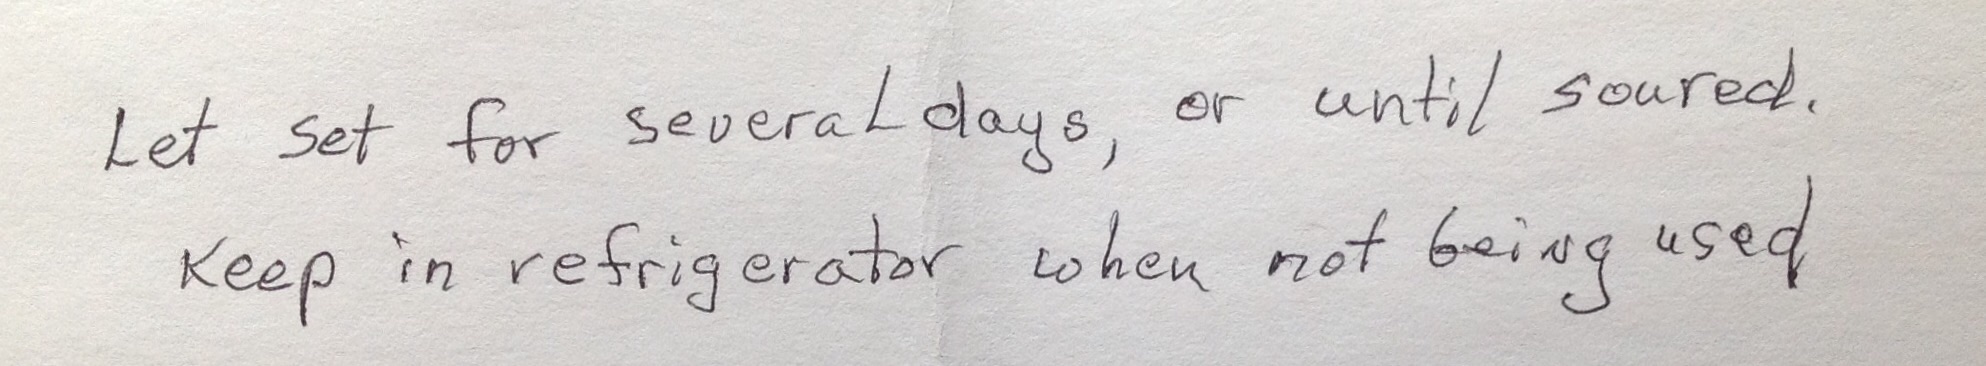 Let set for several days, or until soured.
Keep in refrigerator when not being used